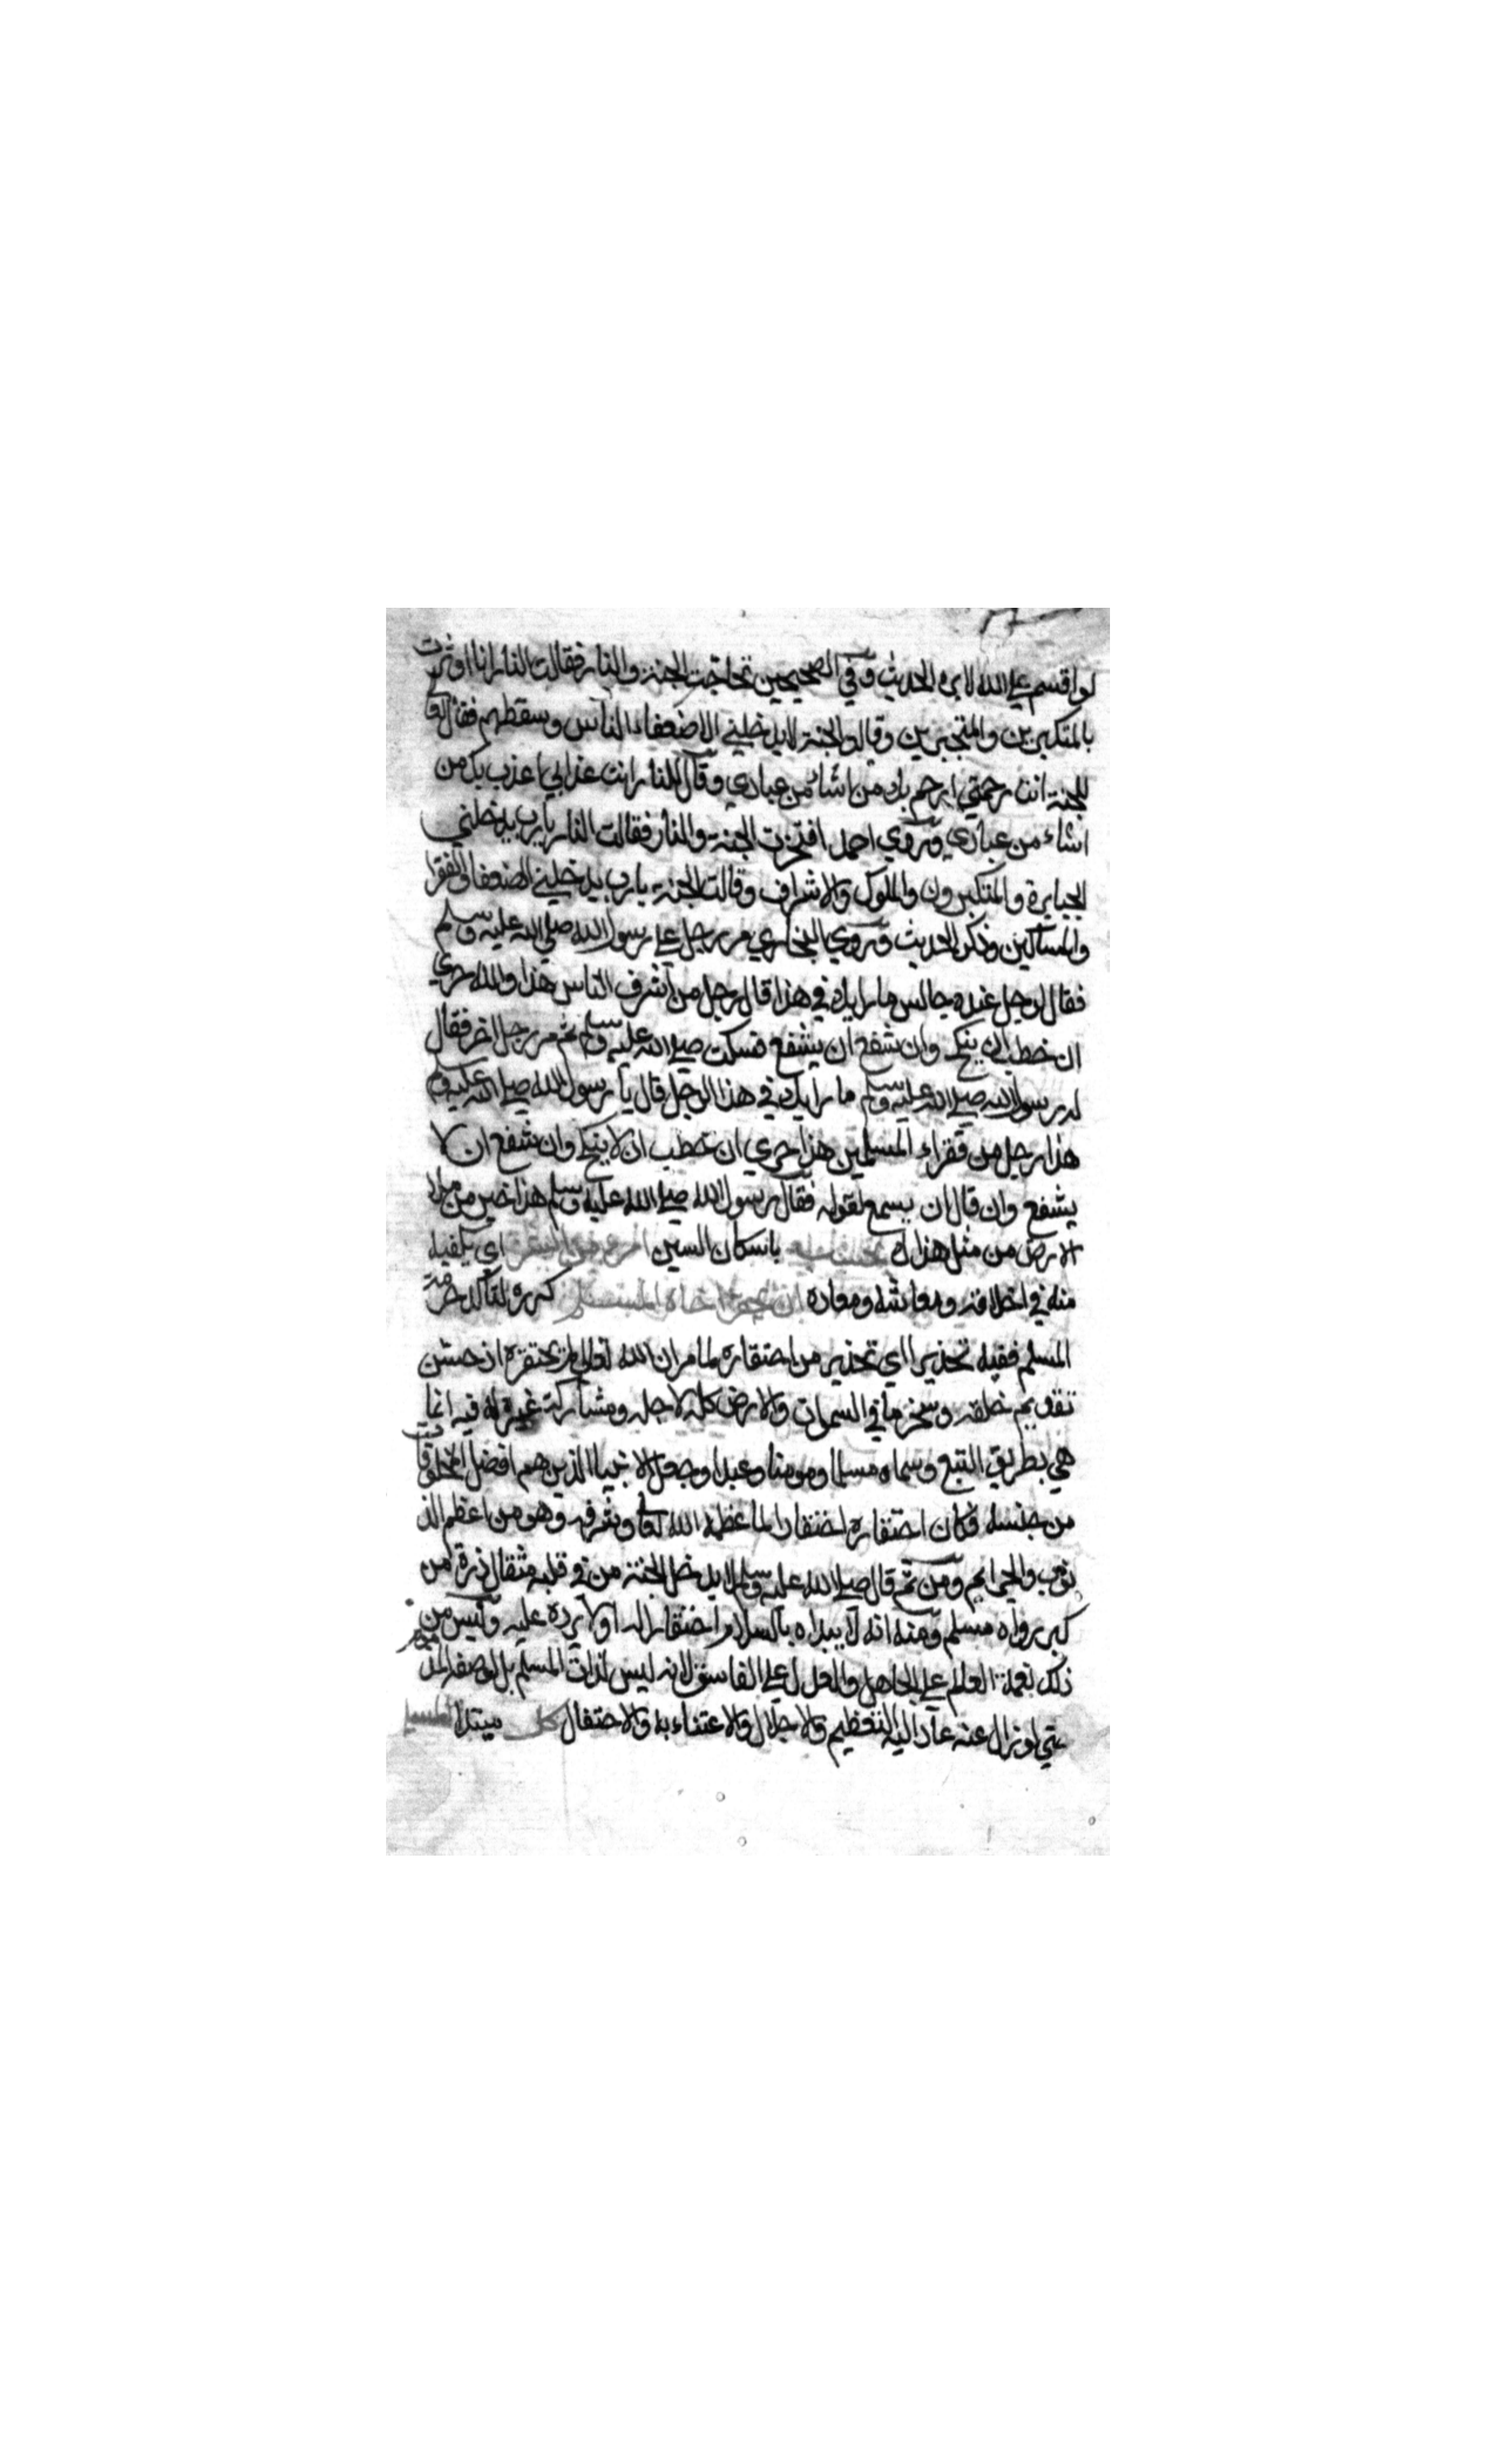 لو اقسم على الله لابره الحديث وفي الصحيحين تحاجت الجنة والنار فقالت النار انا اوثرت
بالمتكبرين والمتجبرين وقالت الجنة لا يدخلني الا ضعفاء الناس وسقطهم فقال الله
للجنة انت رحمتي ارحم بك من اشاء من عبادي وقال للنار انت عذابي اعذب بك من
اشاء من عبادي وروي احمد افتخرت الجنة والنار فقالت النار يارب يدخلني
الجبابرة والمتكبرون والملوك والاشراف وقالت الجنة يارب يدخلني الضعفا والفقرا
والمساكين وذكر الحديث وروي البخاري مر رجل على رسول الله صلى الله عليه وسلم
فقال لرجل عنده جالس ما رايك في هذا قال رجل من اشرف الناس هذا والله حري
ان خطب ان ينكح وان شفع ان يشفع فسكت صلى الله عليه وسلم ثم مر رجل اخر فقال
له رسول الله صلى الله عليه وسلم ما رايك في هذا الرجل قال يا رسول الله صلى الله عليه وسلم
هذا رجل من فقراء المسلمين هذا حري ان خطب ان لا ينكح وان شفع ان لا
يشفع وان قال ان يسمع لقوله فقال رسول الله صلى الله عليه وسلم هذا خير من ملا
الارض من مثل هذا بحسب باسكان السين امرء من الشر اي يكفيه
منه في اخلاقه ومعاشه ومعاده ان يحقر اخاه المسلم كرره لتاكد حرمة
المسلم ففيه تحذير اي تحذير من احتقاره لما مر ان الله تعالى لم يحتقره اذ حسن
تقويم خلقه وسخر ما في السموات والارض كله لاجله ومشاركة غيره له فيه انما
هي بطريق التبع وسماه مسلما ومومنا وعبدا وجعل الانبيا الذين هم افضل المخلوقات
من جنسه فكان احتقاره احتقارا لما عظمه الله تعالى وشرفه وهو من اعظم الذ
نوب والجرايم ومن ثم قال صلى الله عليه وسلم لا يدخل الجنة من في قلبه مثقال ذرة من
كبر رواه مسلم ومنه انه لا يبداه بالسلام احتقارا له او لا يرده عليه وليس من
ذلك نقمة العالم على الجاهل والعدل على الفاسق لانه ليس لذات المسلم بل لوصفه
حتي لو زال عنه عاد اليه التعظيم والاجلال والاعتناء به والاحتفال كل مبتدا المسلم